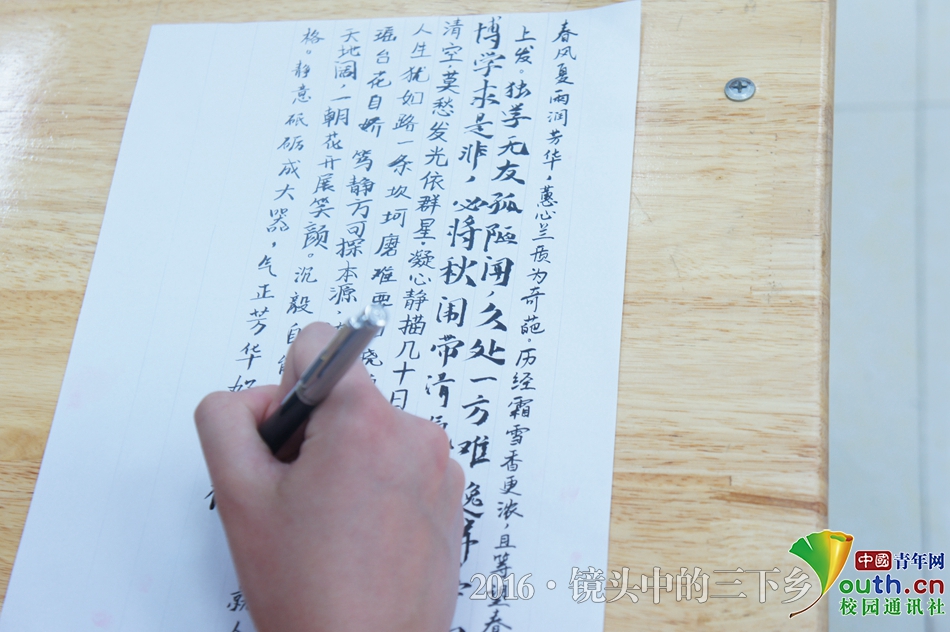 春风夏雨润芳华，蕙心兰质为奇葩，历经霜雪香更浓，且等 春
上发。独学无友孤陋闻，久处一方难逸群
博学求是非，必将秋闱带清
清空，莫愁发光依群星，凝心静描几十日
人生犹如路一条 坎坷磨难要
瑶台花自娇 笃静方可探本源
天地阔，一朝花开展笑颜。沉毅自
格。静意砥砺成大器，气正芳华
2016·镜头中的三下乡
中國青年网
Youth.cn
校园通讯社